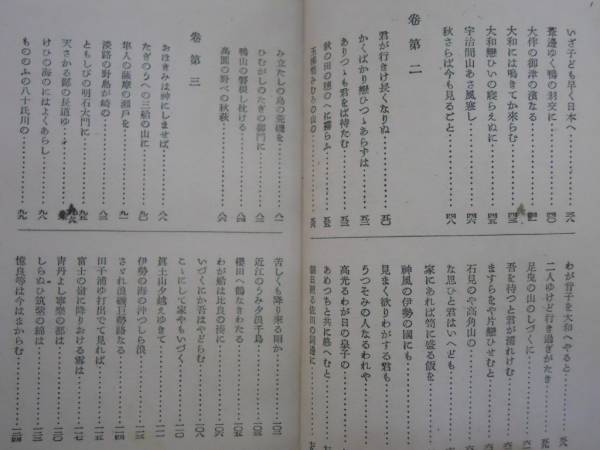 いざ子ども早く日本へ…………三八
葦邊ゆく鴨の羽交に…………四〇
大伴の御津の濱なる…………四一
大和には鳴きてか來らむ…………四三
大和戀ひいの寢らえぬに…………
宇治間山あさ風寒し…………四六
秋さらば今も見るごと…………四八
卷第二
君が行きけ長くなりぬ…………五〇
かくばかり戀ひつゝあらずは…………五一
ありつゝも君をば待たむ…………五二
秋の田の穗のへに霧らふ…………
玉櫛笥みむろの山の…………
わが背子を大和へやると…………
二人ゆけど行き過ぎがたき…………
足曳の山のしづくに…………
吾を待つと君が濡れけむ…………
ますらをや片戀ひせむと…………
石見のや高角山の…………
な思ひと君はいへども…………
家にあれば笥に盛る飯を…………
神風の伊勢の國にも…………
見まく欲りわがする君も…………
うつそみの人なるわれや…………
高光るわが日の皇子の…………
あめつちと共に終へむと…………
朝日照る佐田の岡邊に…………
み立たしの島の荒磯を…………八一
ひむがしのたぎの御門に…………八二
鴨山の磐根し枕ける…………
高圓の野べの秋萩…………八六
卷第三
おほきみは神にしませば…………八八
たぎのうへの三船の山に…………九〇
隼人の薩摩の瀬戸を…………九一
淡路の野島が崎の…………
ともしびの明石大門に…………九五
天ざかる鄙の長道ゆ…………九六
けひの海のにはよくあらし…………九八
もののふの八十氏川の…………九九
苦しくも降り來る雨か…………一〇二
近江のうみ夕浪千鳥…………
櫻田へ鶴なきわたる…………一〇五
わが船は比良の湊に…………一〇六
いづくにか吾はやどらむ…………一〇八
こゝにして家やもいづく…………一一〇
眞土山夕越えゆきて…………
伊勢の海の沖つしら浪…………
さゞれ浪磯巨勢路なる…………
田子浦ゆ打出でて見れば…………
富士の嶺に降りおける雪は…………
青丹よし寧樂の都は…………
しらぬひ筑紫の綿は…………
憶良等は今はまからむ…………